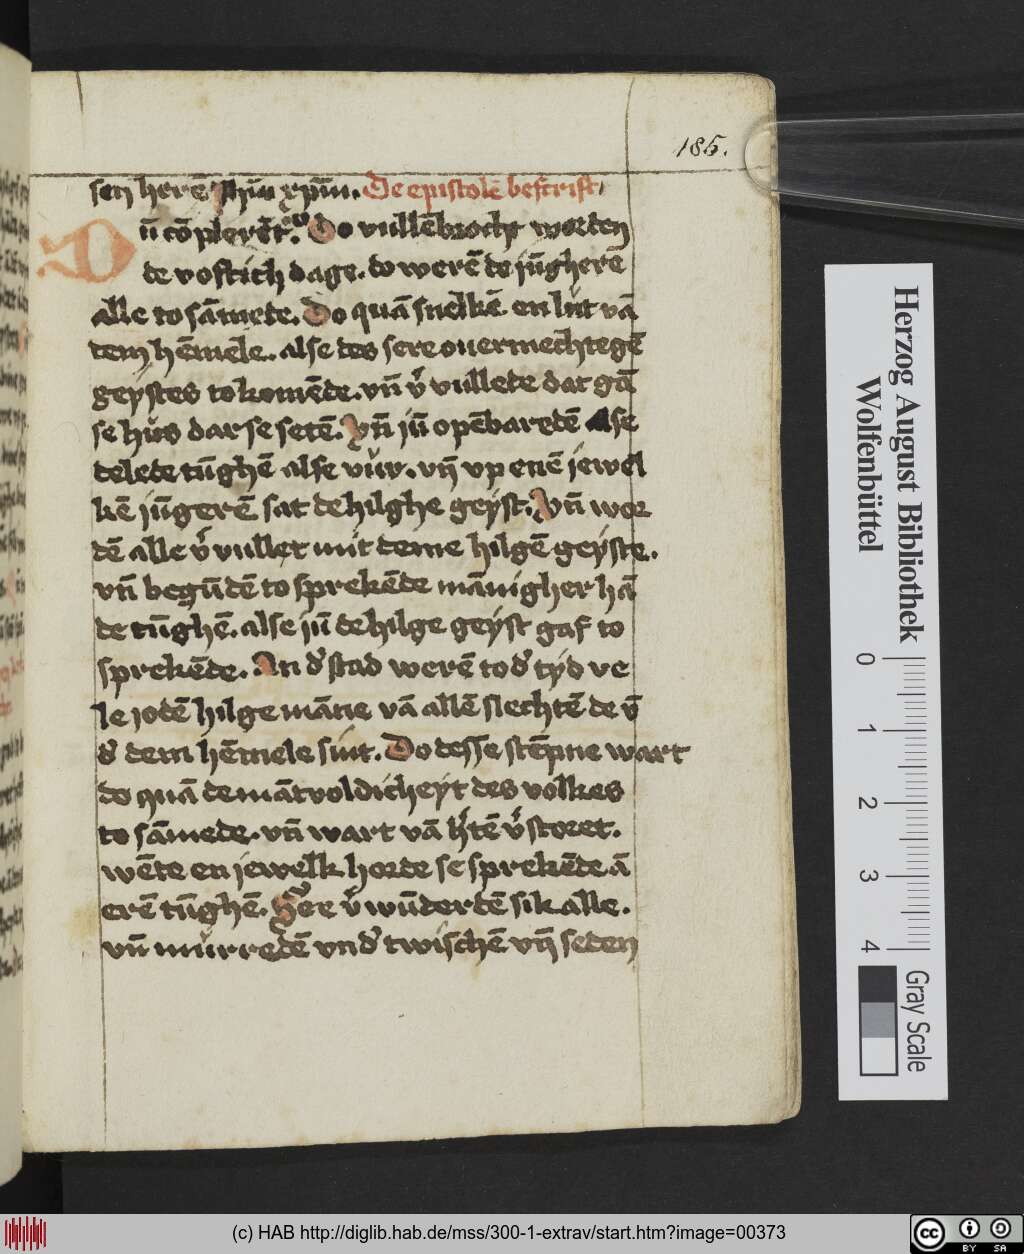 185.
sen herē jhū xpm. De epistolē bescrift,
Dū cōplerēt. Do vullēbrocht worden
de voftich dage. do werē de jūgherē
alle to sāmede. Do quā snelkē en lut vā
dem hēmele. alse des sere ouermechtegē
geystes to komēde. vn̄ v᷑vullede dat gā
se hus dar se setē. vn̄ jū opēbaredē alse
delede tūghē alse vuͦr. vn̄ vp enē jewel
kē jūgerē sat de hilghe geyst. vn̄ wor
dē alle v᷑vullet mit deme hilgē geyste.
vn̄ begūdē to sprekēde mānigher hā
de tūghē. alse jū de hilge geyst gaf to
sprekēde. An d᷑ stad werē to d᷑ tyd ve
le jodē hilge māne vā allē slechtē de v̄
d᷑ dem hēmele sint. Do desse stēpne wart
do quā de mātvoldicheyt des volkes
to sāmede. vn̄ wart vā h᷑tē v᷑storet.
wēte en jewelk horde se sprekēde ā
erē tūghē. Ser v᷑wūderdē sik alle.
vn̄ murredē vnd᷑ twischē vn̄ seden
Herzog August Bibliothek
Wolfenbüttel
0
1
2
3
4
Gray Scale
(c) HAB http://diglib.hab.de/mss/300-1-extrav/start.htm?image=00373
cc BY SA